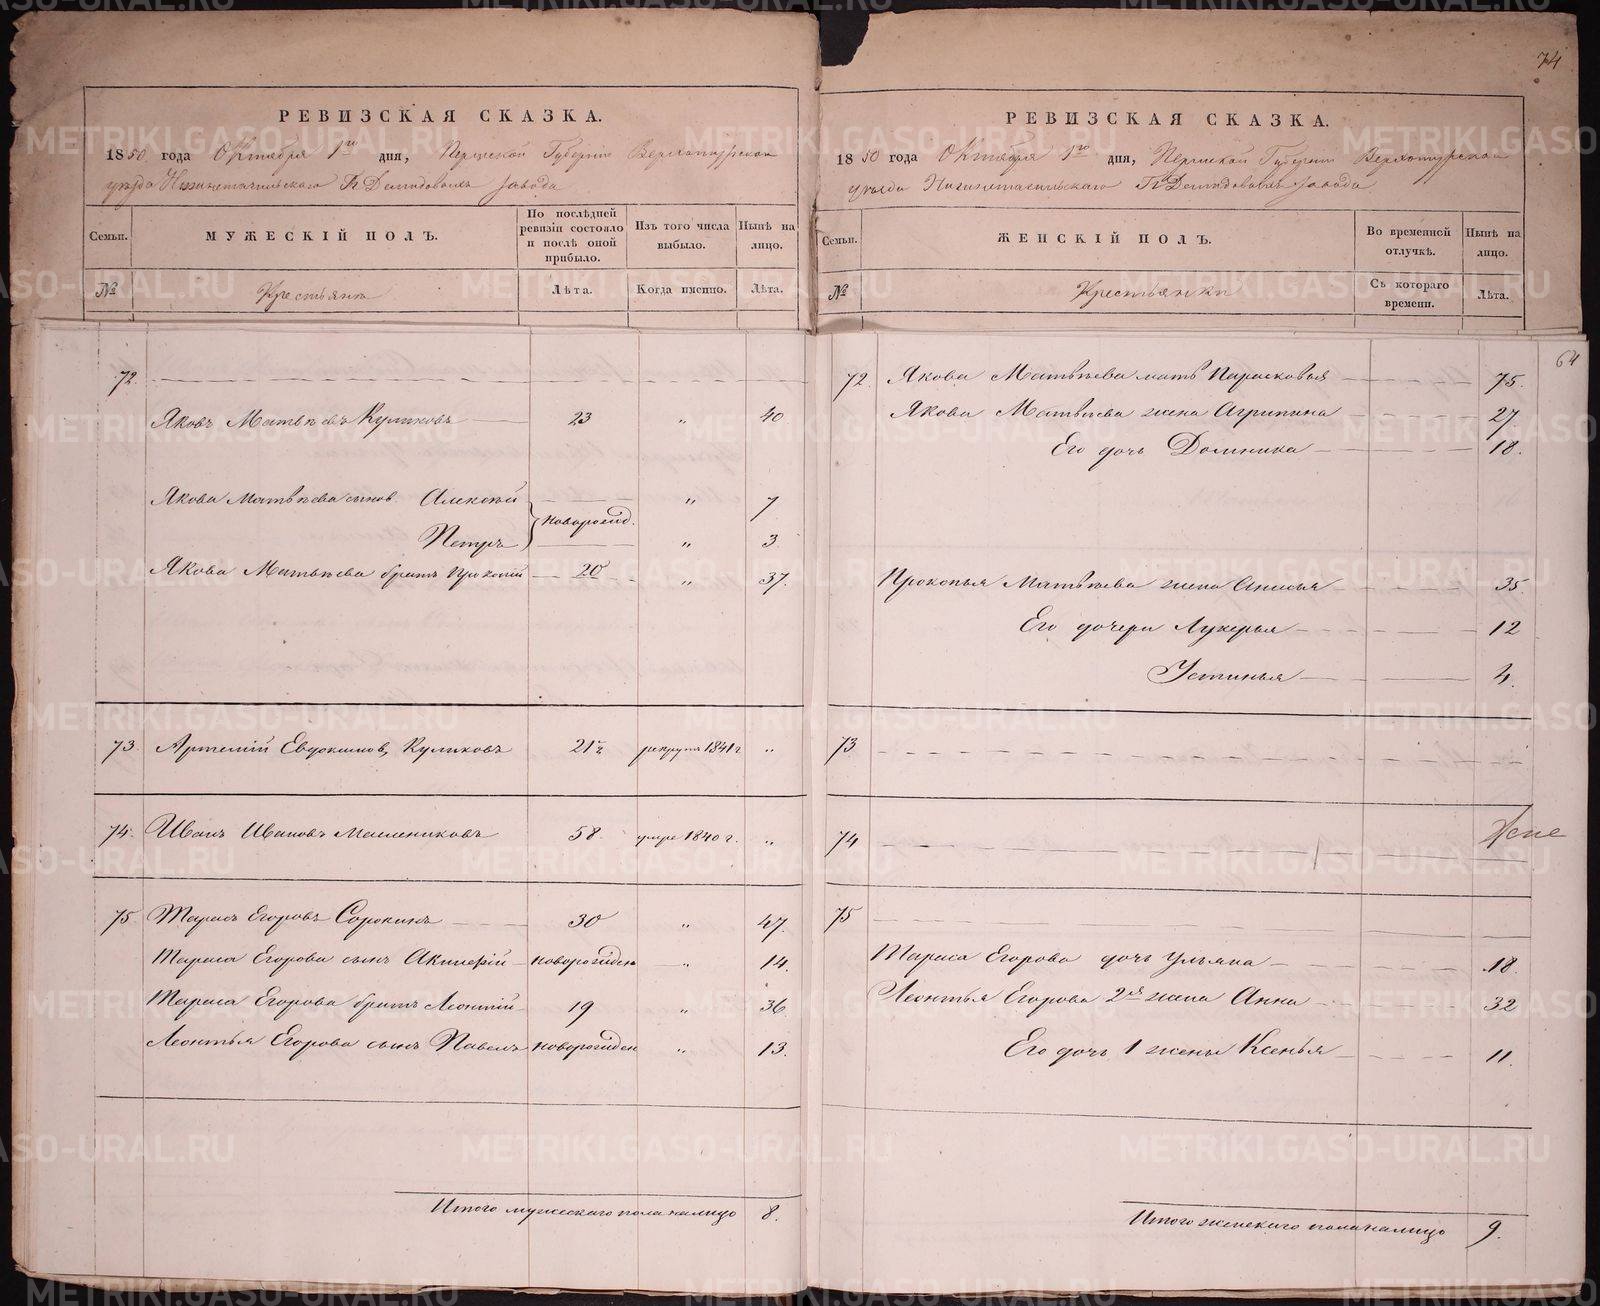 РЕВИЗСКАЯ СКАЗКА.
1850 года Октября 1го дня, Пермской Губернiи Верхотурскаго
уѣзда Нижнетагильскаго Гг. Демидовыхъ завода
Семьи. МУЖЕСКIЙ ПОЛЪ. По послѣдней ревизiи состояло и послѣ оной прибыло. Изъ того числа выбыло. Нынѣ на лицо.
№ Крестьяне Лѣта. Когда именно. Лѣта.
72.
Яковъ Матвѣевъ Куликовъ 23 " 40
Якова Матвѣева сынов. Алексѣй новорожд. " 7
Петръ " 3
Якова Матвѣева братъ Прокопiй 20 " 37.
73. Артемiй Евдокимов, Куликовъ 21 ¾ рекрут 1841 г "
74. Иванъ Ивановъ Маслениковъ 58 умре 1840 г. "
75. Тарасъ Егоровъ Сорокинъ 30 " 47.
Тараса Егорова сынъ Акинфiй новорожден " 14.
Тараса Егорова братъ Леонтiй 19 " 36
Леонтья Егорова сынъ Павелъ новорожден " 13.
Итого мужескаго пола налицо 8.
74
РЕВИЗСКАЯ СКАЗКА.
1850 года Октября 1го дня, Пермской Губернiи Верхотурскаго
уѣзда Нижнетагильскаго Гг. Демидовыхъ завода
Семьи. ЖЕНСКIЙ ПОЛЪ. Во временной отлучкѣ. Нынѣ на лицо.
№ Крестьянки Съ котораго времени. Лѣта.
64
72. Якова Матвѣева мать Парасковья 75.
Якова Матвѣева жена Агрипина 27
Его дочь Домника 18.
Прокопья Матвѣева жена Анисья 35
Его дочери Лукерья 12
Устинья 4.
73
74
75
Тараса Егорова дочь Ульяна 18.
Леонтья Егорова 2я жена Анна 32
Его дочь 1 жены Ксенья 11.
Итого женскаго пола налицо 9.
METRIKI.GASO-URAL.RU